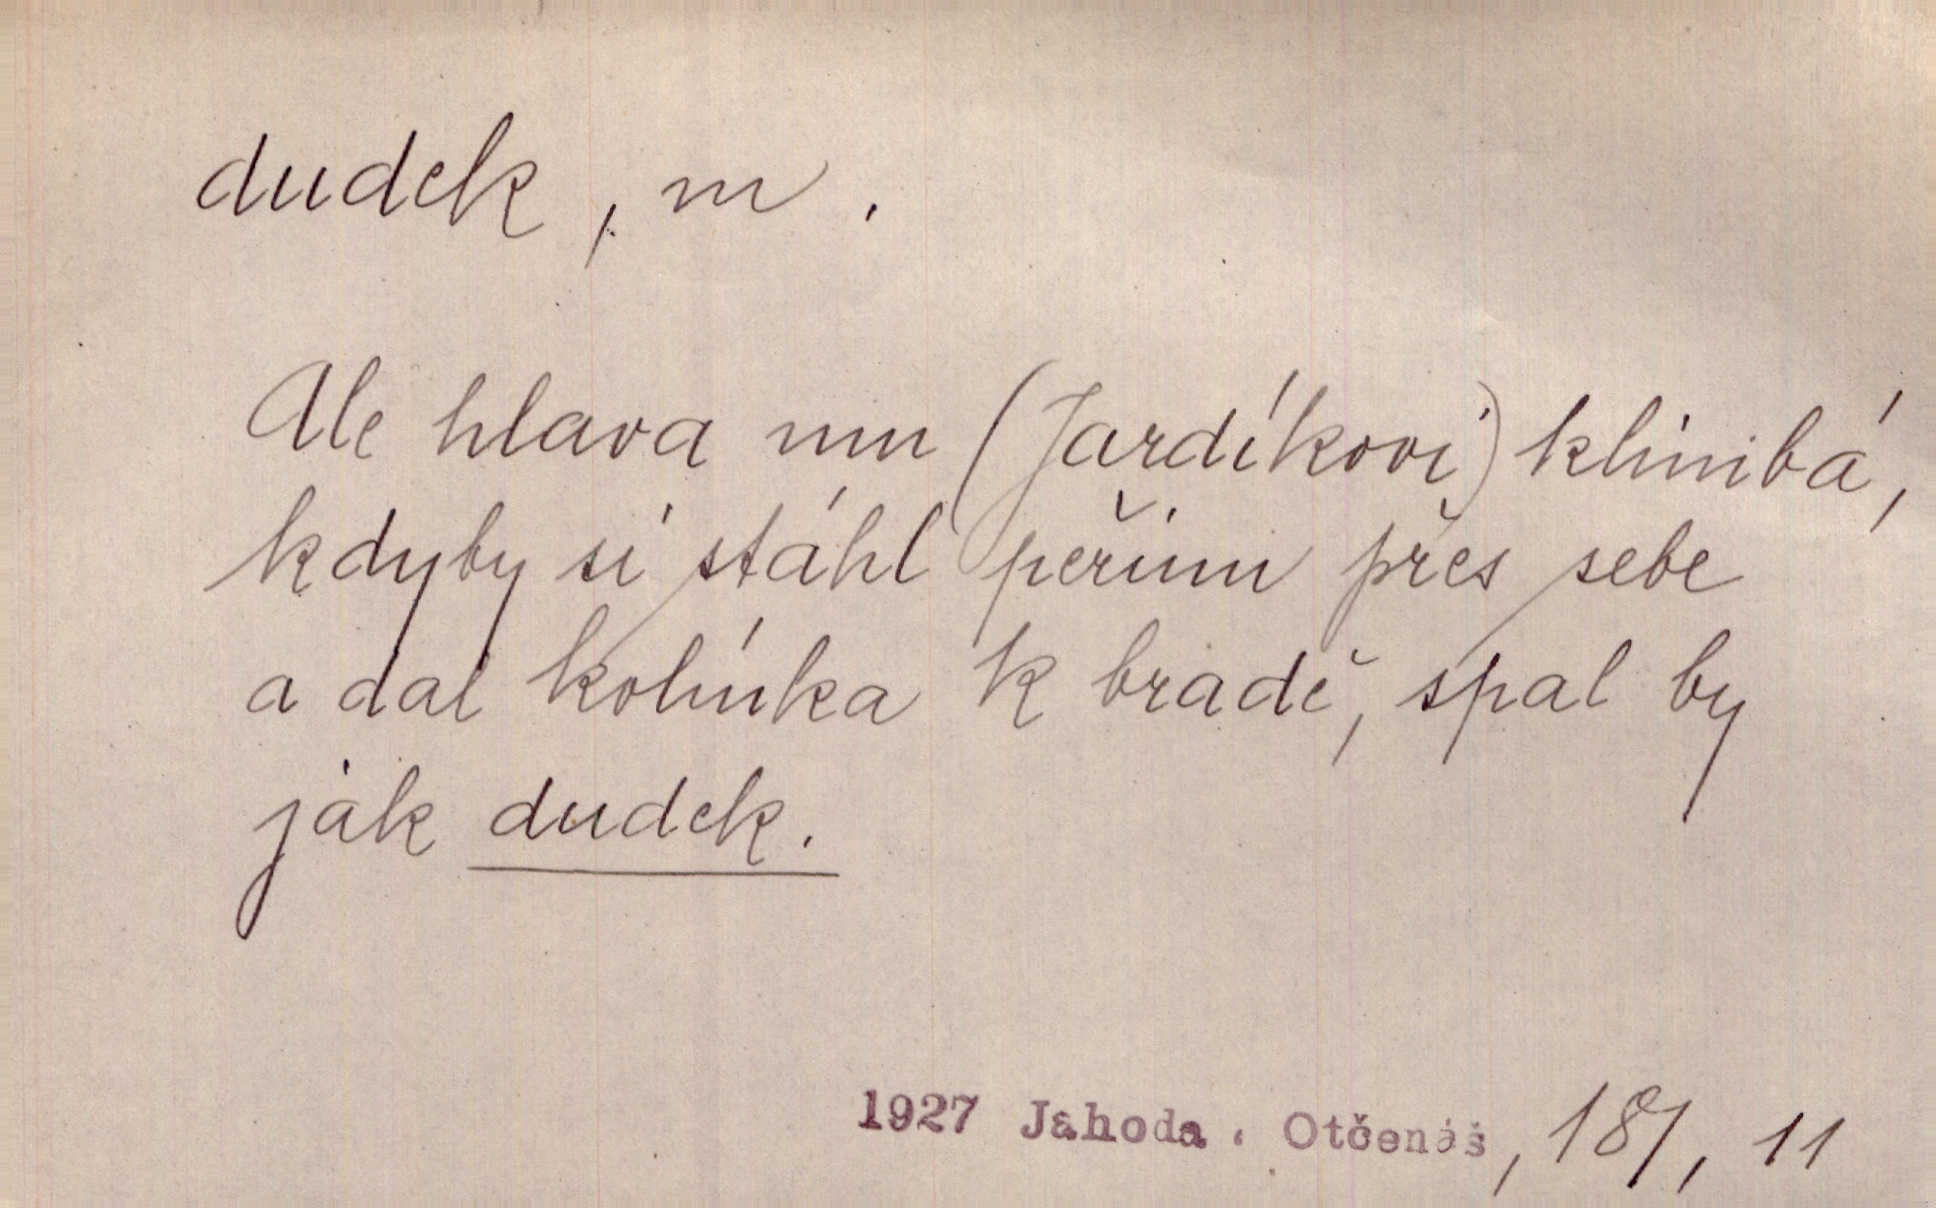 dudek, m.
Ale hlava mu (Jardíkovi) klimbá,
kdyby si stáhl peřinu přes sebe
a dal kolínka k bradě, spal by
jak dudek.
1927 Jahoda. Otčenáš, 181, 11